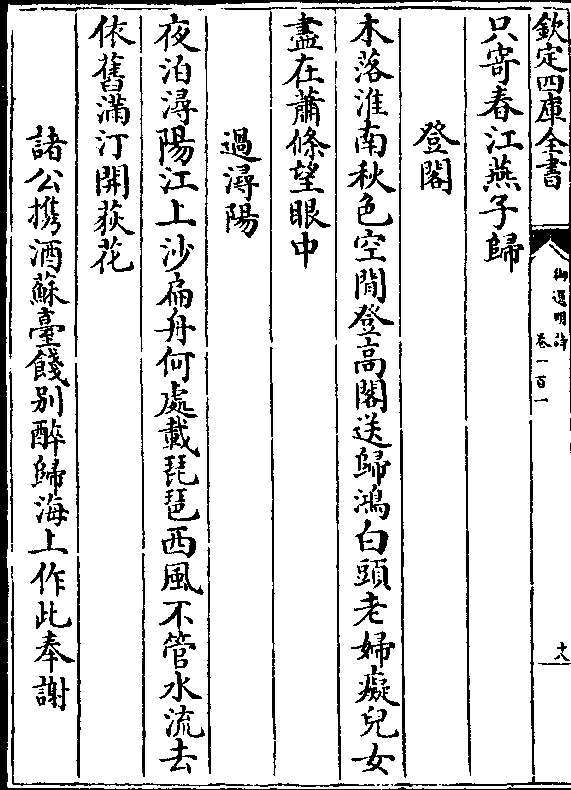 欽定四庫全書
御選明詩
卷一百一
十八
只寄春江燕子歸
登閣
木落淮南秋色空閒登高閣送歸鴻白頭老婦癡兒女
盡在蕭條望眼中
過潯陽
夜泊潯陽江上沙扁舟何處載琵琶西風不管水流去
依舊滿汀開荻花
諸公攜酒蘇臺餞别醉歸海上作此奉謝